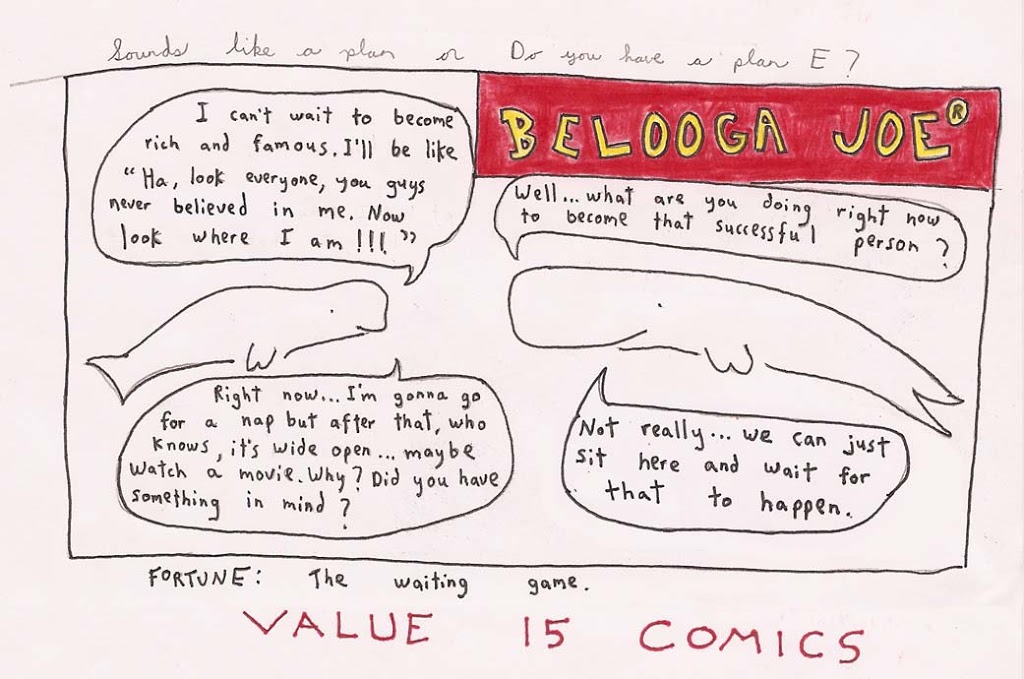 Sounds like a plan or Do you have a plan E?
BELOOGA JOE®
I can't wait to become
rich and famous. I'll be like
"Ha, look everyone, you guys
never believed in me. Now
look where I am!!!"
Well... what are you doing right now
to become that successful person?
Right now... I'm gonna go
for a nap but after that, who
knows, it's wide open... maybe
watch a movie. Why? Did you have
something in mind?
Not really... we can just
sit here and wait for
that to happen.
FORTUNE: The waiting game.
VALUE 15 COMICS